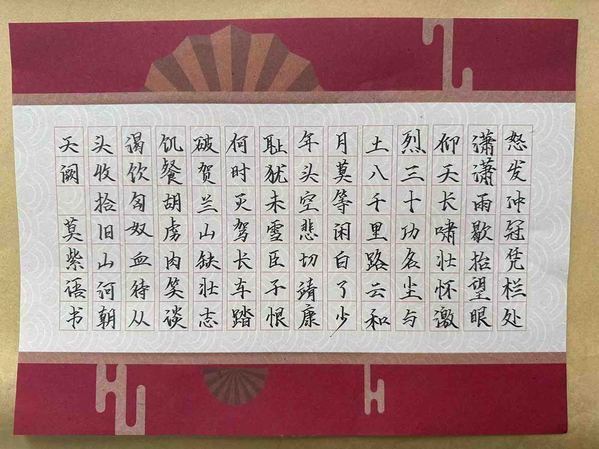 怒发冲冠凭栏处
潇潇雨歇抬望眼
仰天长啸壮怀激
烈三十功名尘与
土八千里路云和
月莫等闲白了少
年头空悲切靖康
耻犹未雪臣子恨
何时灭驾长车踏
破贺兰山缺壮志
饥餐胡虏肉笑谈
渴饮匈奴血待从
头收拾旧山河朝
天阙 莫紫语书